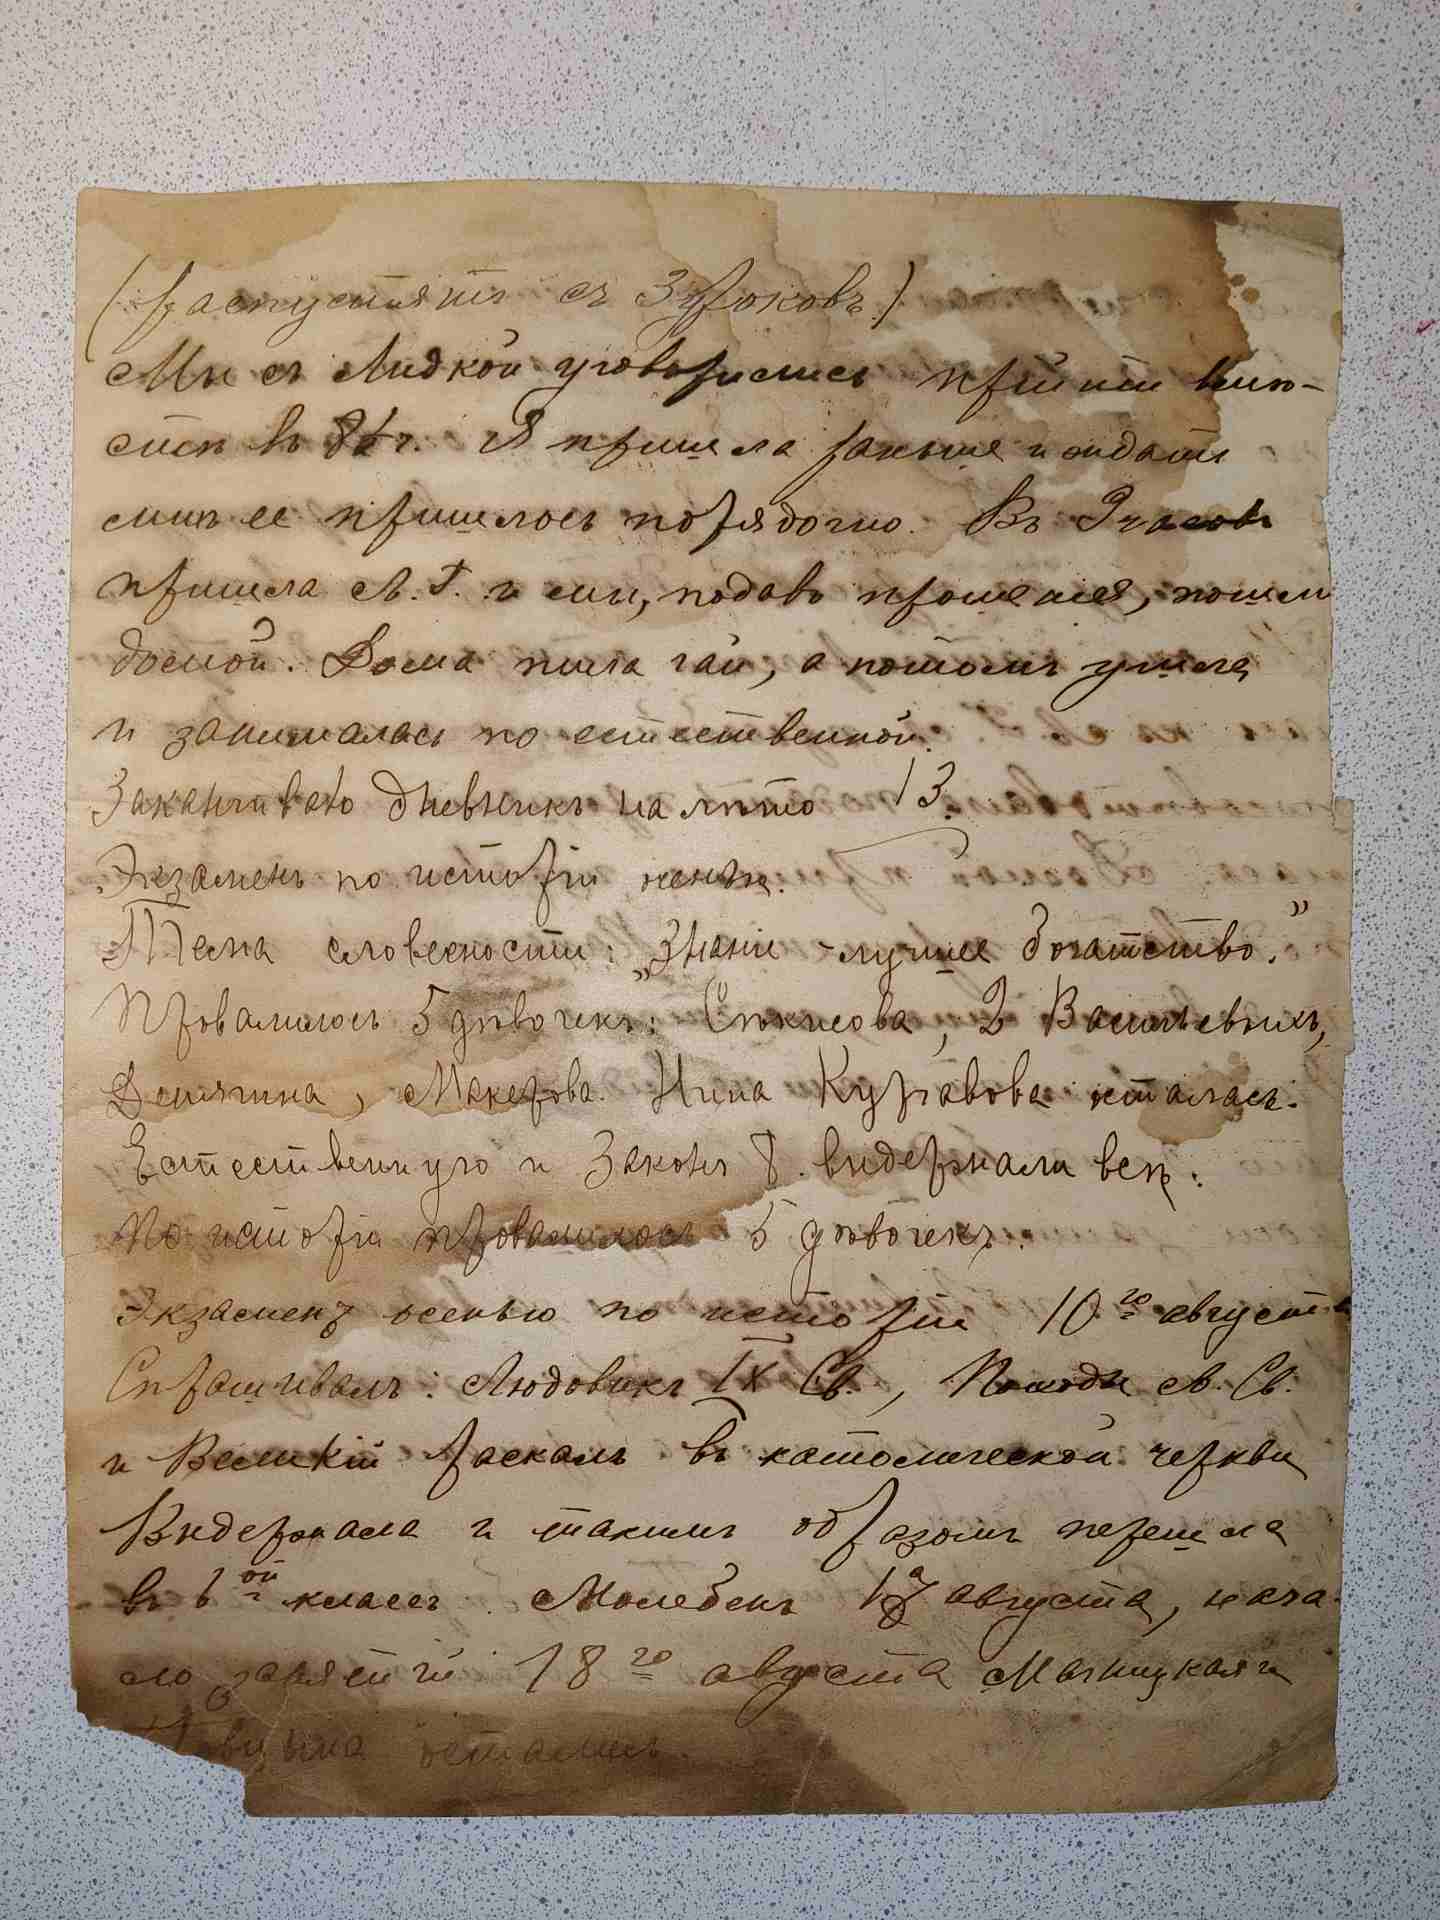 (распустятъ съ 3 уроковъ.)
Мы съ Лидкой уговорились прійти вмѣ-
стѣ въ 8½ч. Я пришла раньше и ждать
мнѣ ее пришлось порядочно. Въ 9 часовъ
пришла Л. Г. и мы, подавъ прошенія, пошли
домой. Дома пила чай, а потомъ ушла
и занималась по естественной.
Заканчиваю дневникъ на лѣто 13.
Экзаменъ по исторіи осенью.
Тема словесности: „Знаніе – лучшее богатство."
Провалилось 5 дѣвочекъ: 2 Васильевыхъ,
Макерова. Нина осталась.
Естественную и Законъ Б. выдержали всѣ.
По исторіи провалилось 5 дѣвочекъ.
Экзаменъ осенью по исторіи 10го августа
Спрашивалъ: Людовикъ IX Св., Походы Л. Св.
и Великій расколъ въ католической церкви
Выдержала и такимъ образомъ перешла
въ 6ой классъ. Молебенъ 17 августа, нача-
ло занятій 18го августа Магницкая и
остались.